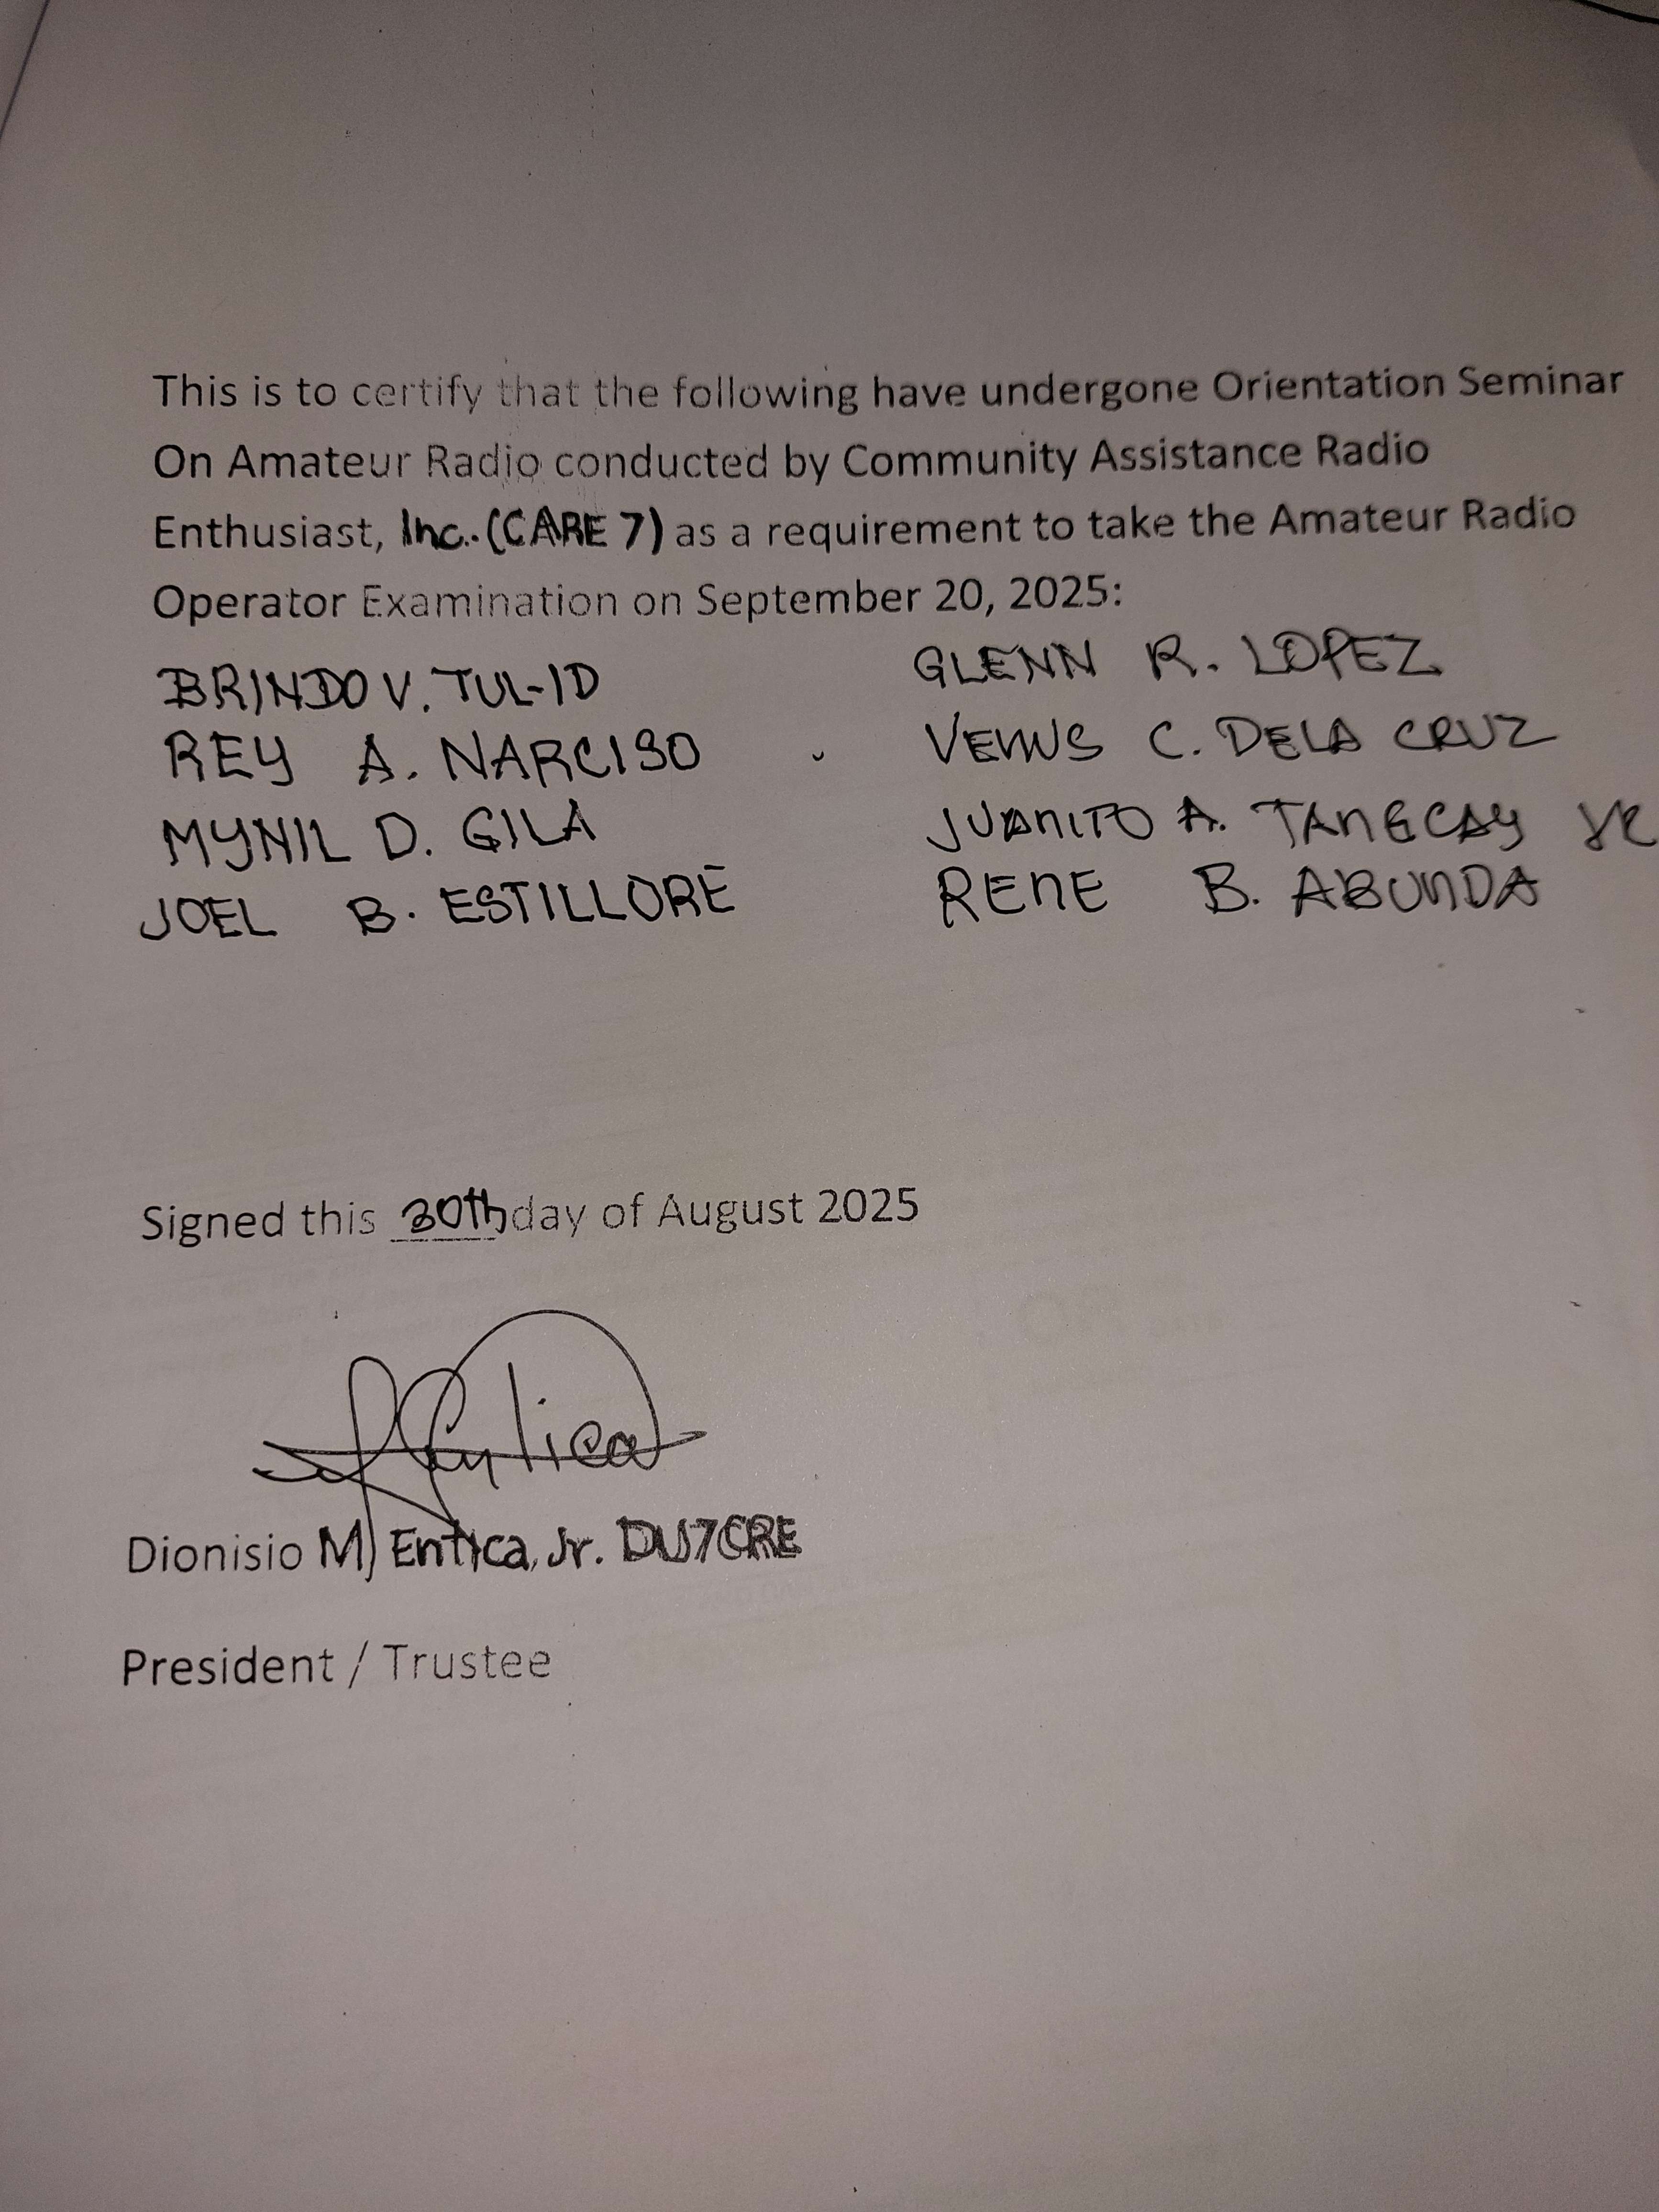 This is to certify that the following have undergone Orientation Seminar
On Amateur Radio conducted by Community Assistance Radio
Enthusiast, Inc. (CARE 7) as a requirement to take the Amateur Radio
Operator Examination on September 20, 2025:
BRINDO V. TUL-ID
REY A. NARCISO
MYNIL D. GILA
JOEL B. ESTILLORE
GLENN R. LOPEZ
VENUS C. DELA CRUZ
JUANITO A. TANGCAY JR
RENE B. ABUNDA
Signed this 30th day of August 2025
Dionisio M Entica, Jr. DU7CRE
President / Trustee